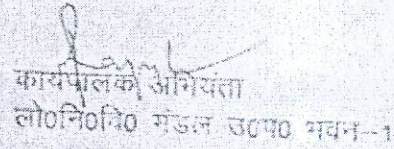 कार्यपालक अभियंता
लो०नि०वि० मंडल उ०प० भवन--1